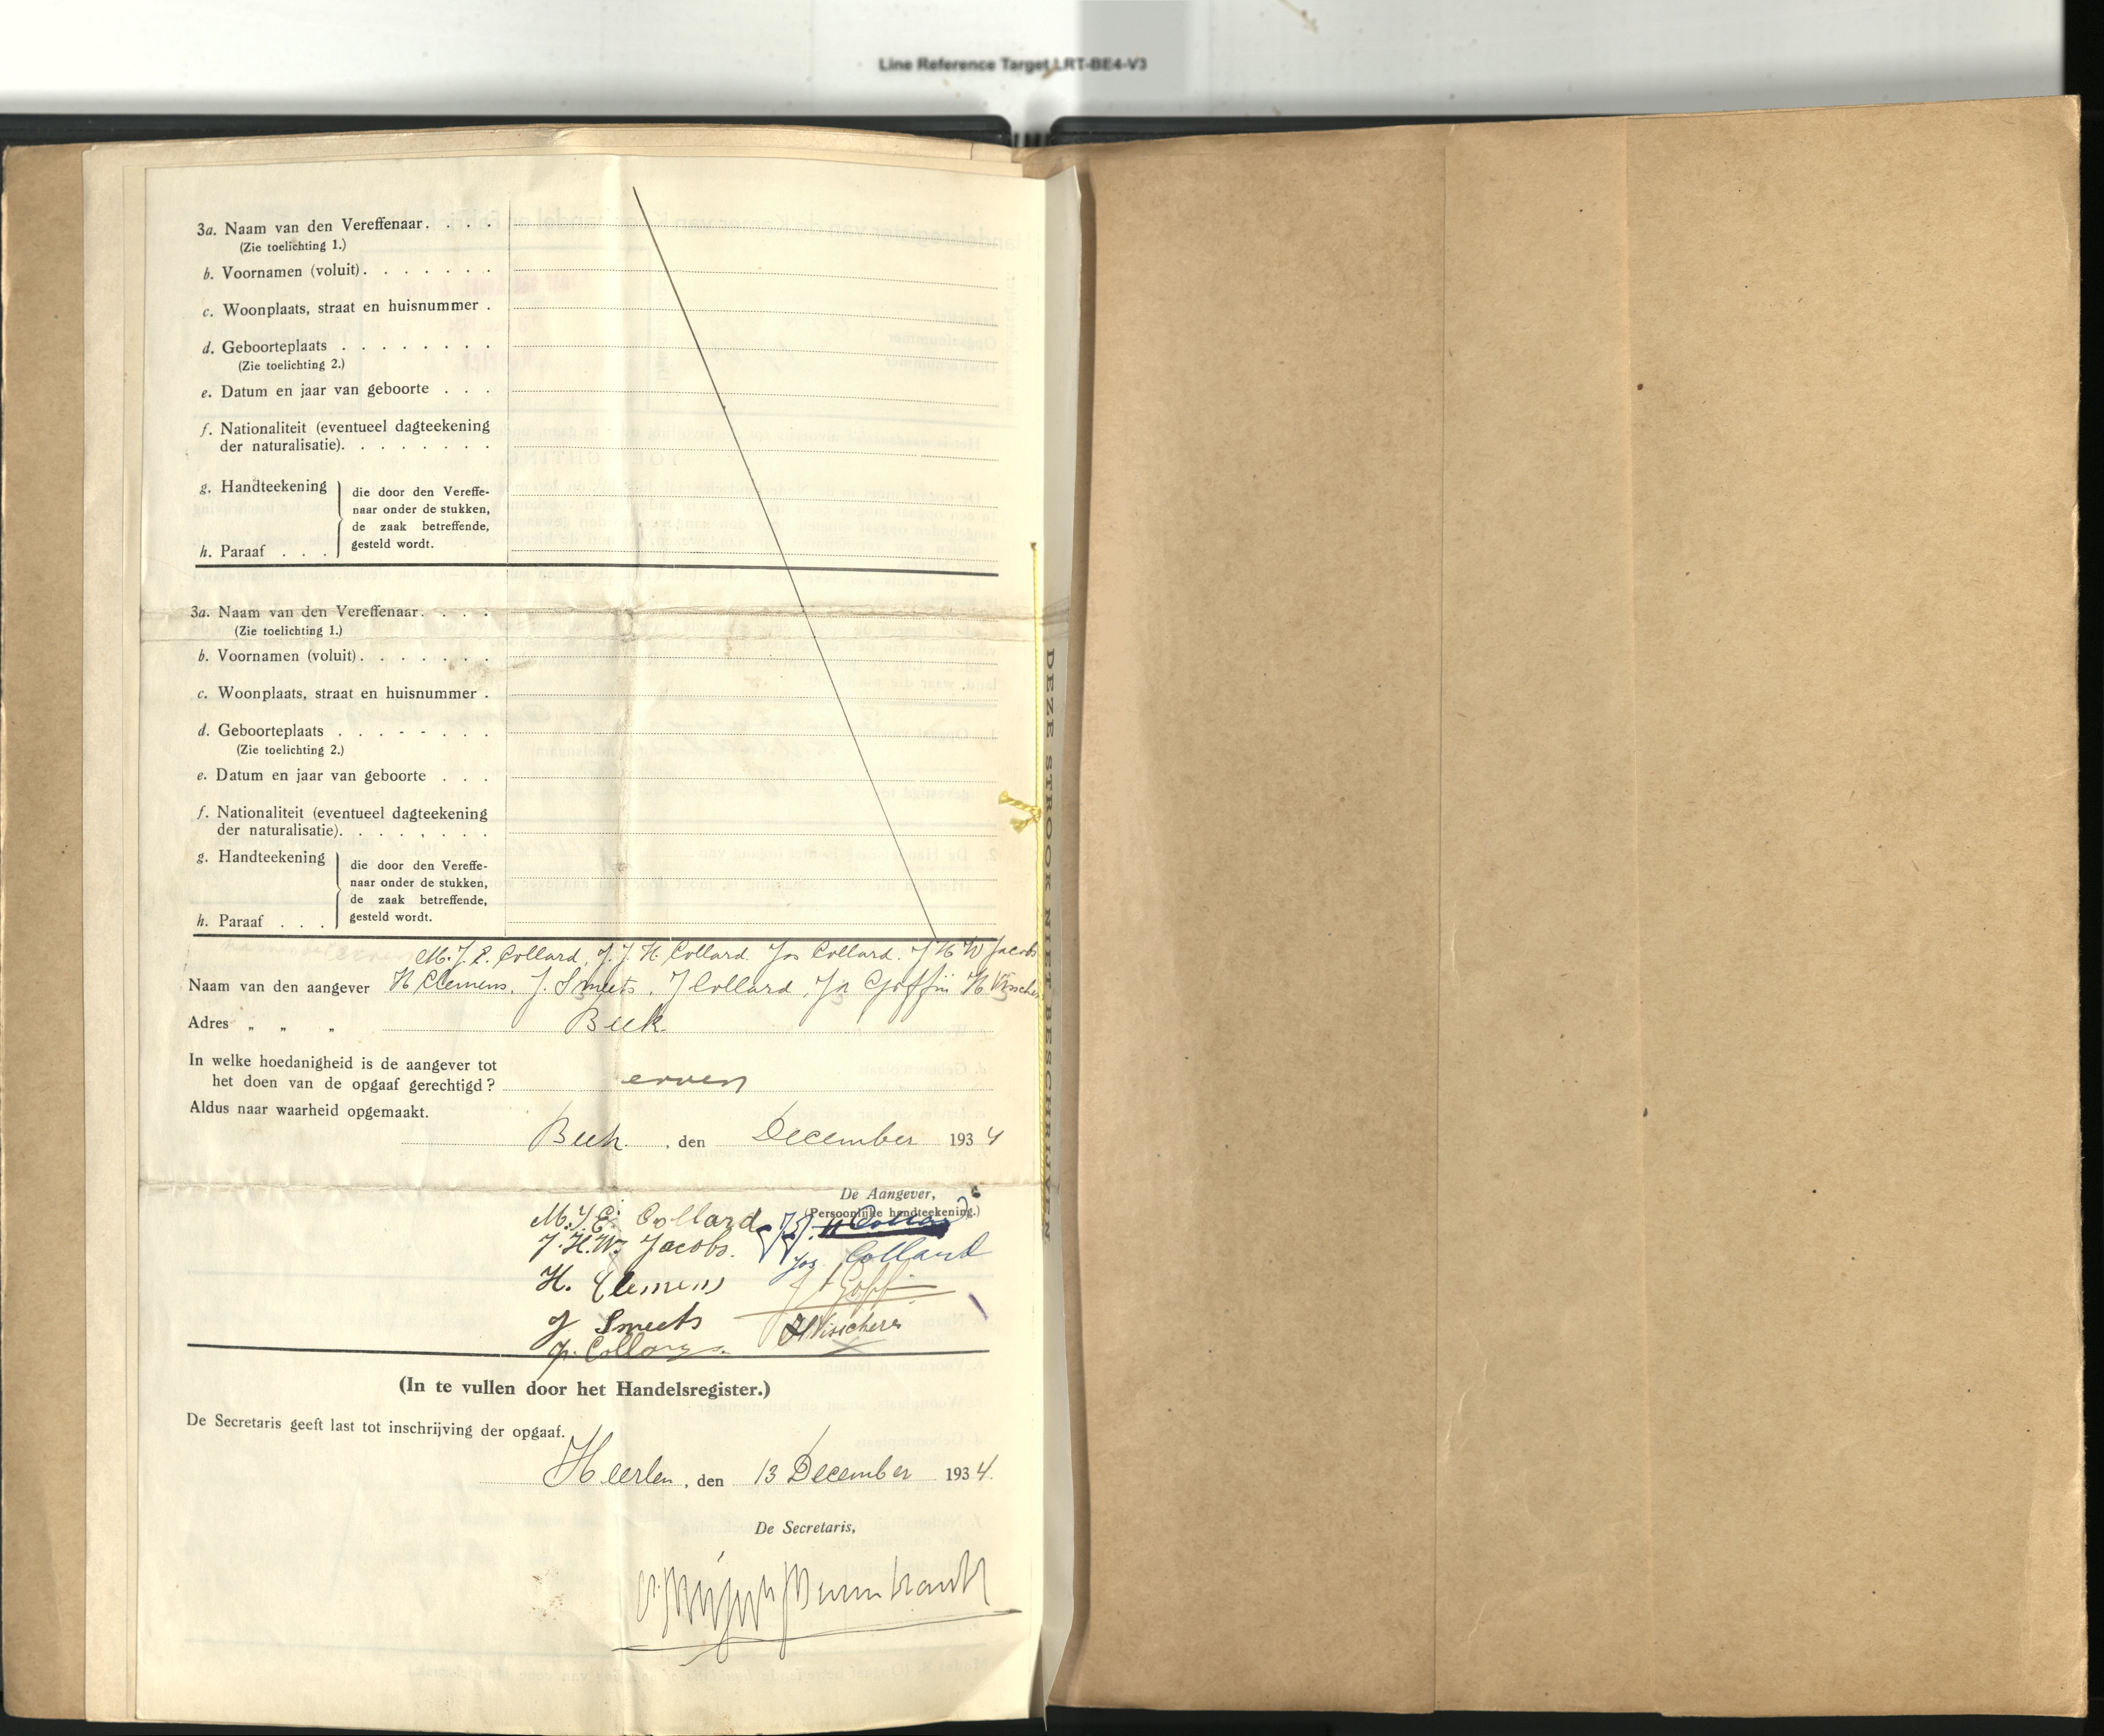 Line Reference Target LRT-BE4-V3
3a. Naam van den Vereffenaar. . . .
(Zie toelichting 1.)
b. Voornamen (voluit). . . . . . .
c. Woonplaats, straat en huisnummer .
d. Geboorteplaats . . . . . . . .
(Zie toelichting 2.)
e. Datum en jaar van geboorte . . .
f. Nationaliteit (eventueel dagteekening
der naturalisatie). . . . . . . .
g. Handteekening
die door den Vereffe-
naar onder de stukken,
de zaak betreffende,
gesteld wordt.
h. Paraaf . . .
3a. Naam van den Vereffenaar. . . .
(Zie toelichting 1.)
b. Voornamen (voluit). . . . . . .
c. Woonplaats, straat en huisnummer .
d. Geboorteplaats . . . . . . . .
(Zie toelichting 2.)
e. Datum en jaar van geboorte . . .
f. Nationaliteit (eventueel dagteekening
der naturalisatie). . . . . . . .
g. Handteekening
die door den Vereffe-
naar onder de stukken,
de zaak betreffende,
gesteld wordt.
h. Paraaf . . .
M. J. E. Collard, J. J. H. Collard. Jos Collard. J H W Jacobs
Naam van den aangever H Clemens. J. Smeets. J Collard, Goffin H Visschers
Adres „ „ „ Beek
In welke hoedanigheid is de aangever tot
het doen van de opgaaf gerechtigd? erven
Aldus naar waarheid opgemaakt.
Beek, den December 1934
De Aangever,
(Persoonlijke handteekening.)
M. J. E. Collard
J. H. W. Jacobs. Jos Collard
H. Clemens J Goffin
J Smeets H Visschers
J. Collard
(In te vullen door het Handelsregister.)
De Secretaris geeft last tot inschrijving der opgaaf.
Heerlen, den 13 December 1934.
De Secretaris,
DEZE STROOK NIET BESCHRIJVEN